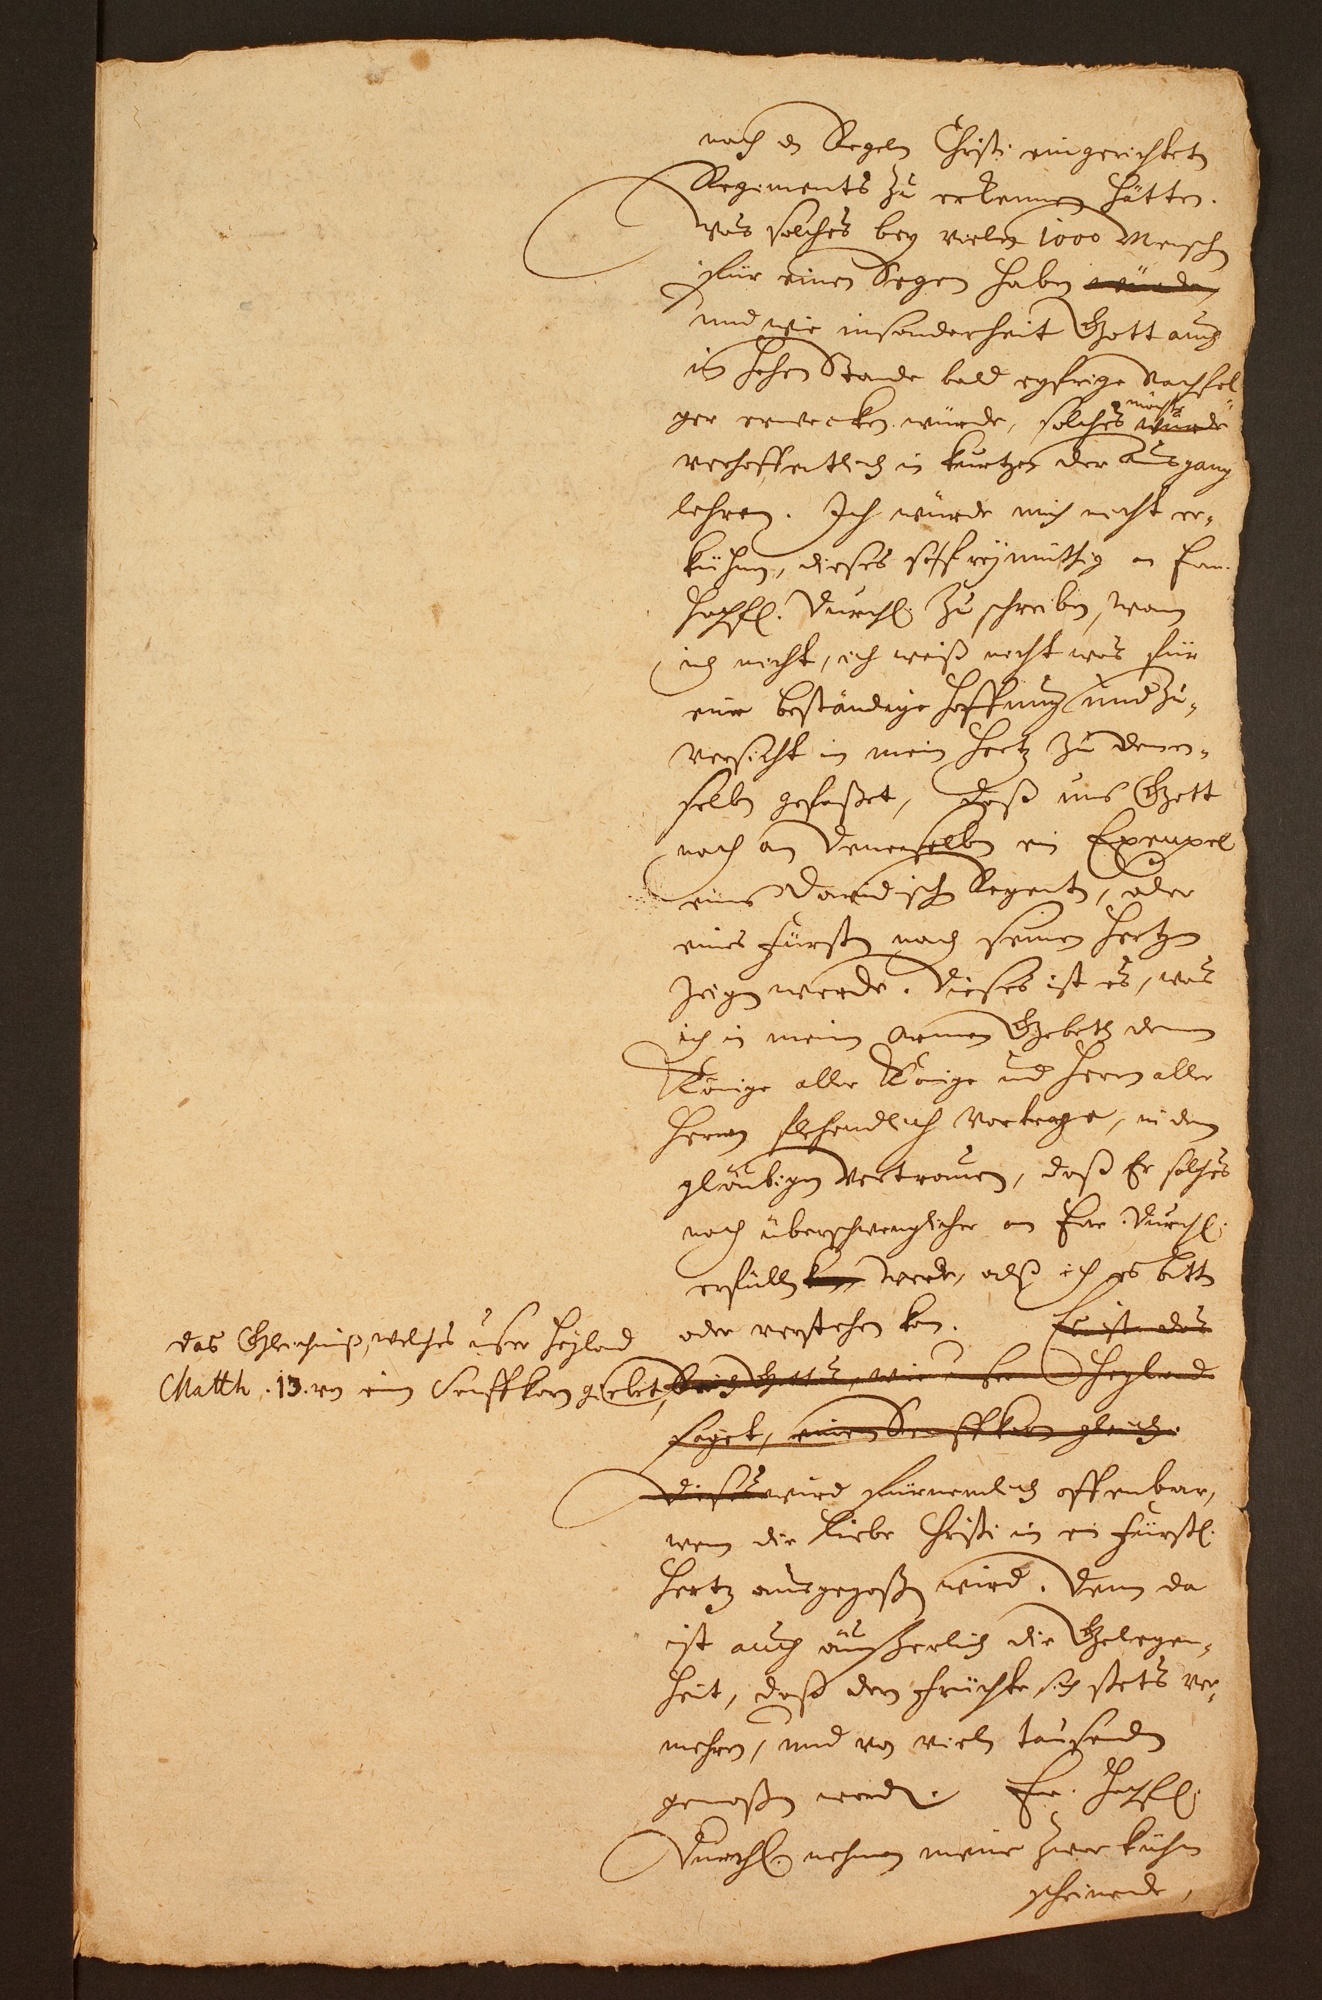 nach d Regeln Christi eingerichteten
Regiments zu erkennen hätten.
Was solches bey vielen 1000 Menschen
für einen Segen haben würde,
und wie insonderheit Gott auch
in hohen Stande bald eyfrige Nachfol-
ger erwecken würde, solches würde
möchte
verhoffentlich in kurtzen der Ausgang
lehren. Ich würde mich nicht er-
kühnen, dieses so freymüthig an Ew.
Hochfl. Durchl. zu schreiben, wann
ich nicht, ich weiß nicht was für
eine beständige Hoffnung und Zu-
versicht in mein Hertz zu denen-
selben gefaßet, daß uns Gott
noch an Denenselben ein Exempel
eines Davidischen Regenten, oder
eines Fürsten nach seinem Hertzen
zeigen werde. Dieses ist es, was
ich in meinem armen Gebeth dem
Könige aller Könige und Herrn aller
Herren flehendlich vortrage, in dem
gläubigen Vertrauen, daß Er solches
noch überschwenglicher an Ew. Durchl.
erfüllen kan werde, alß ich es bitten
oder verstehen kan. Es ist das
Reich Gottes, wie unser Heyland
saget, einem Senffkorn gleich.
das Gleichniß, welches unser Heyland
Matth. 13. von einem Senffkorn giebet,
Dieses wird fürnemlich offenbar,
wenn die Liebe Christi in ein Fürstl.
Hertz ausgegoßen wird. Denn da
ist auch äußerlich die Gelegen-
heit, daß deren Früchte sich stets ver-
mehren, und von vielen tausenden
genoßen werden. Ew. Hochfl.
Durchl. nehmen meine zwar kühn
scheinende,